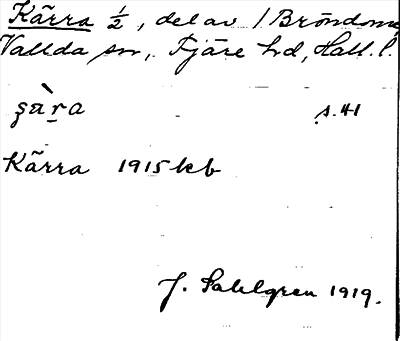 Kärra ½, del av 1 Bröndome
Vallda sn, Fjäre hd, Hall. l.
şàṟa s. 41
Kärra 1915 kb
J. Sahlgren 1919.